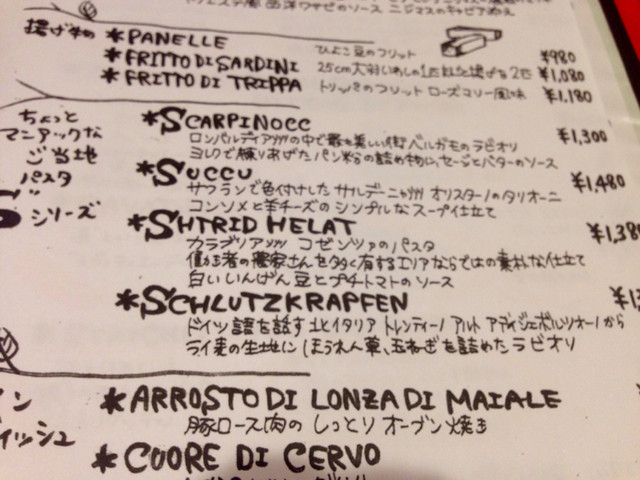 西洋ワサビのソース ニジマスのキャビア添え
揚げ物 *PANELLE ひよこ豆のフリット ¥980
*FRITTO DI SARDINI 25cm大羽いわしの ¥1,080
*FRITTO DI TRIPPA トリッパのフリット ローズマリー風味 ¥1,180
ちょっと
マニアックな
ご当地
パスタ
Sシリーズ
*SCARPINOCC ¥1,300
ロンバルディア州の中で最も美しい街ベルガモのラビオリ
ミルクで練りあげたパン粉の詰め物に、セージとバターのソース
*SUCCU ¥1,480
サフランで色付けした サルデーニャ州 オリスターノのタリオーニ
コンソメと羊チーズの シンプルなスープ仕立て
*SHTRID HELAT ¥1,38
カラブリア州 コゼンツァのパスタ
働き者の農家さんを多く有するエリアならではの素朴な仕立て
白いいんげん豆とプチトマトのソース
*SCHLUTZKRAPFEN
ドイツ語を話す北イタリア トレンティーノ アルト アディジェボルツァーノから
ライ麦の生地に ほうれん草、玉ねぎを詰めたラビオリ
*ARROSTO DI LONZA DI MAIALE
豚ロース肉の しっとり オーブン焼き
*CUORE DI CERVO